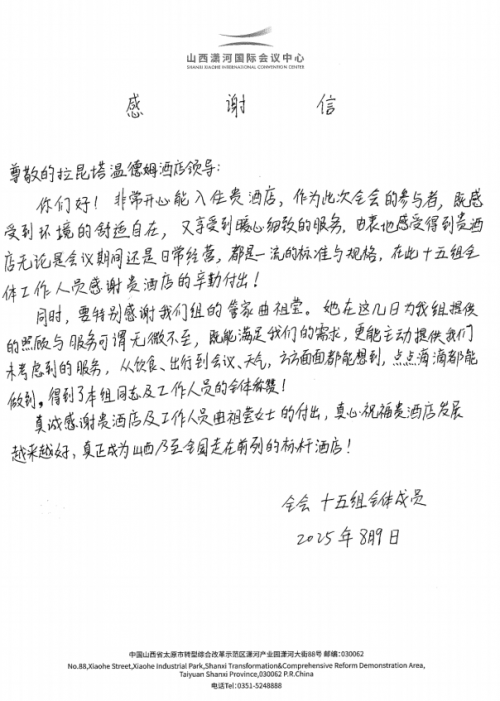 山西潇河国际会议中心
SHANXI XIAOHE INTERNATIONAL CONVENTION CENTER
感谢信
尊敬的拉昆塔温德姆酒店领导:
你们好！非常开心能入住贵酒店，作为此次全会的参与者，既感
受到环境的舒适自在，又享受到暖心细致的服务，由衷地感受得到贵酒
店无论是会议期间还是日常经营，都是一流的标准与规格，在此十五组全
体工作人员感谢贵酒店的辛勤付出！
同时，要特别感谢我们组的管家曲祖莹。她在这几日为我组提供
的照顾与服务可谓无微不至，既能满足我们的需求，更能主动提供我们
未考虑到的服务，从饮食、出行到会议、天气，方方面面都能想到，点点滴滴都能
做到。得到了本组同志及工作人员的全体称赞！
真诚感谢贵酒店及工作人员曲祖莹女士的付出，真心祝福贵酒店发展
越来越好，真正成为山西乃至全国走在前列的标杆酒店！
全会 十五组全体成员
2025年8月9日
中国山西省太原市转型综合改革示范区潇河产业园潇河大街88号 邮编：030062
No.88,Xiaohe Street,Xiaohe Industrial Park,Shanxi Transformation&Comprehensive Reform Demonstration Area,
Taiyuan Shanxi Province,030062 P.R.China
电话Tel：0351-5248888